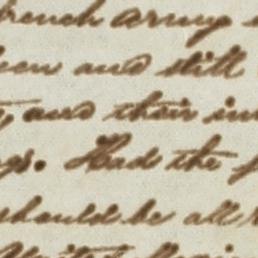 french army
een and still
and their in
gs. Had the f
should be all